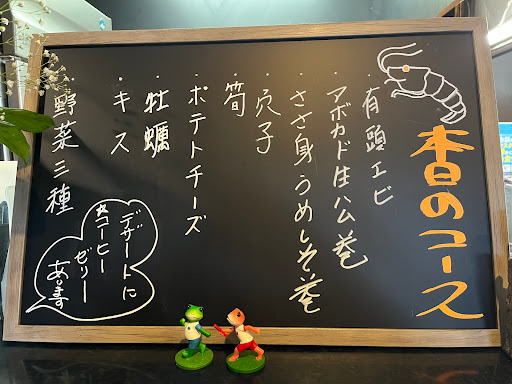 本日のコース
・有頭エビ
・アボカド生ハム巻
・ささ身うめしそ巻
・穴子
・筍
・ポテトチーズ
・牡蠣
・キス
・野菜三種
デザートに
☆コーヒー
ゼリー
あります